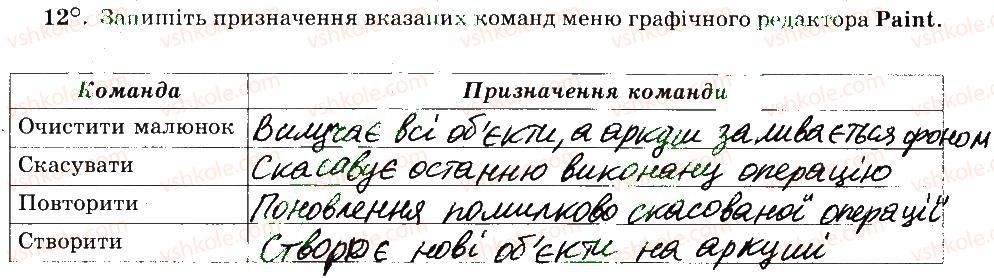 12°. Запишіть призначення вказаних команд меню графічного редактора Paint.
Команда Призначення команди
Очистити малюнок Вилучає всі об'єкти, а аркуш заливається фоном
Скасувати Скасавує останню виконану операцію
Повторити Поновлення помилково скасованої операції
Створити Створює нові об'єкти на аркуші